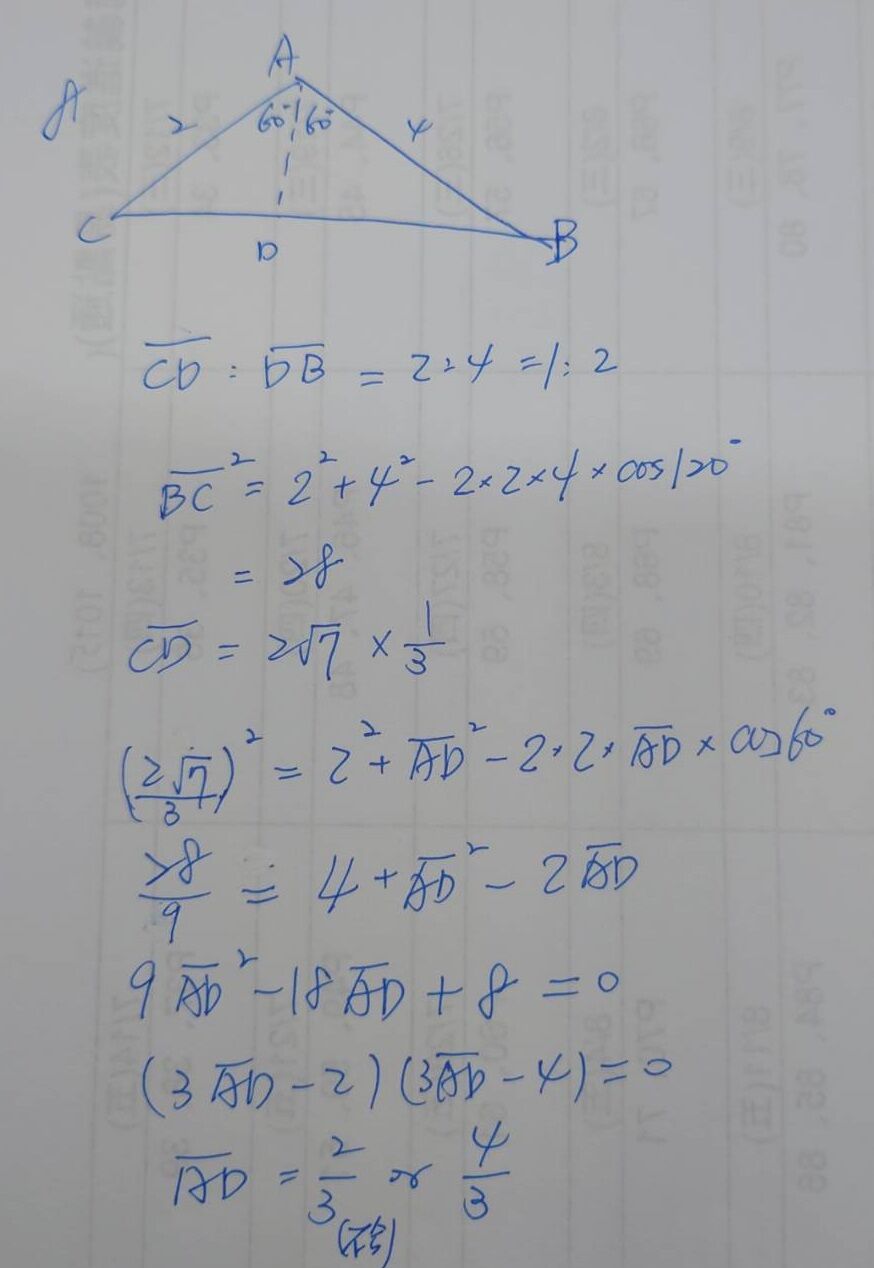 A
2
60° 60°
4
C
B
D
CD : DB = 2:4 = 1:2
BC² = 2² + 4² - 2×2×4×cos120°
= 28
CD = 2√7 × 1/3
(2√7/3)² = 2² + AD² - 2·2×AD×cos60°
28/9 = 4 + AD² - 2AD
9AD² - 18AD + 8 = 0
(3AD - 2)(3AD - 4) = 0
AD = 2/3 or 4/3